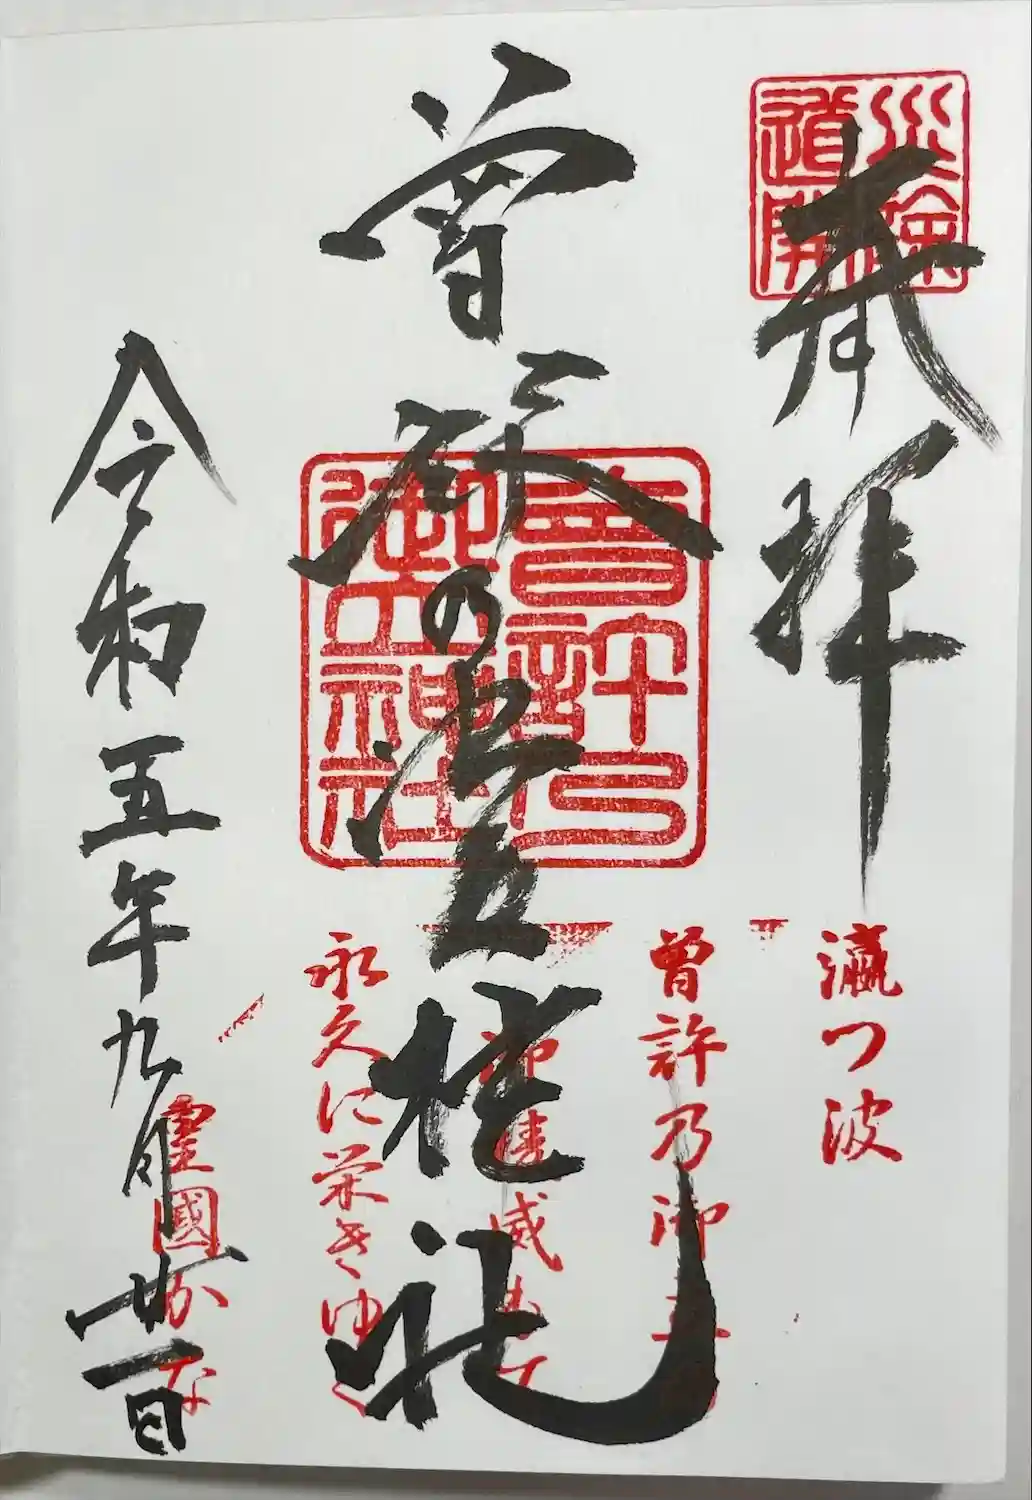 災除
道開
奉拝
瀛つ波
曾許乃御立神社
曽許の御立神社
曽許乃御立
威もて
永久に栄えゆく
令和五年九月廿一日
霊國かな